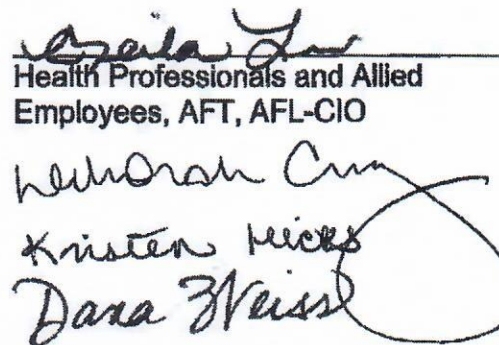 Health Professionals and Allied
Employees, AFT, AFL-CIO
Deborah
Kristen Hicks
Dana Weiss